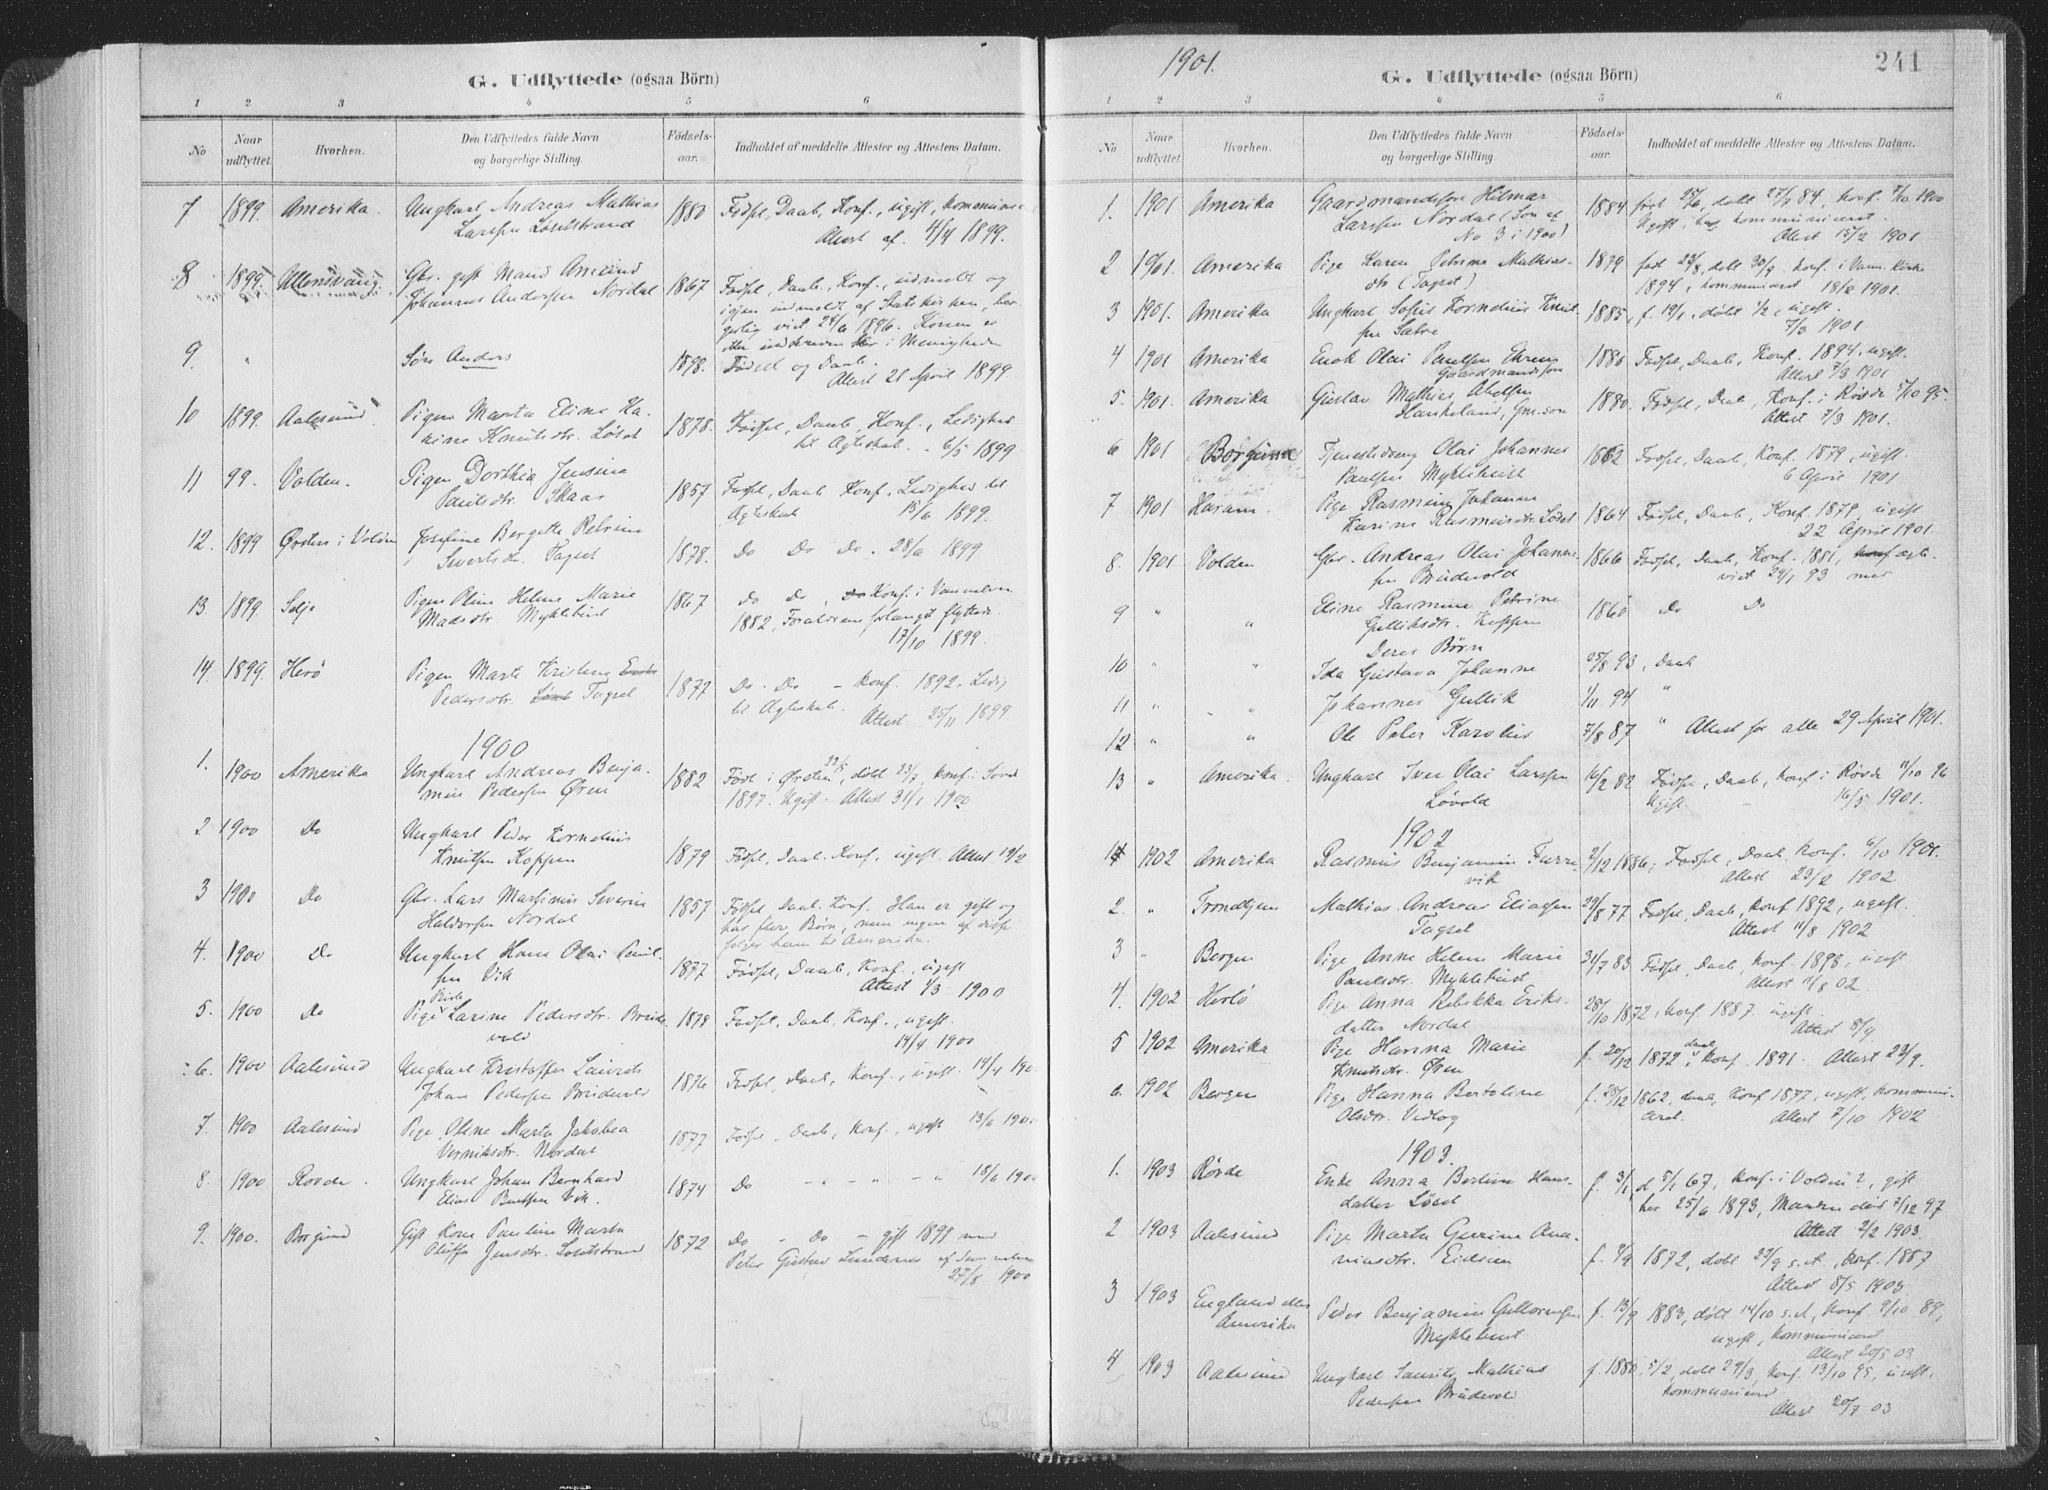 G. Udflyttede (ogsaa Börn)
1 2 3 4 5 6
No
Naar udflyttet.
Hvorhen.
Den Udflyttedes fulde Navn og borgerlige Stilling.
Födsels-aar.
Indholdet af meddelte Attester og Attestens Datum.
7 1899. Amerika. Ungkarl Andreas Mathias 1880 Födsel, Daab, Konf., ugift,
Larssen Løsetstrand Attest af 4/4 1899.
8 1899. Ullensvang. Gbr. gift Mand Amund 1867 Födsel, Daab, Konf., udmeldt og
Johannes Anderssen Nordal igjen indmeldt af Statskirken, bor-
gerlig viet 24/6 1896. Konen er
i Menigheden
9. " Søn Anders 1898. Födsel og Daab.
Attest 21 April 1899
10 1899. Aalesund. Pigen Marta Eline Ka- 1878. Födsel, Daab, Konf., Ledighed
rine Knutsdtr. Løset til Ægteskab. - 6/5 1899
11 99. Volden. Pigen Dorthea Jensine 1857 Födsel, Daab Konf., Ledighed til
Paulsdtr. Skaar Ægteskab 15/6 1899.
12. 1899 Ørsten i Volden Josefine Bergitte Petrine 1878. Do Do Do. 28/6 1899
Sivertsdtr. Tagset
13 1899. Selje Pigen Oline Helene Marie 1867 Do Do, Konf. i Vannelven
Madsdtr. Myklebust 1882, Forældrene flyttede.
17/10 1899.
14. 1899. Herø Pigen Marte Kristine 1877 Do. Do - Konf. 1892. Ledig
Pedersdtr. Tagset til Ægteskab. Attest 25/11 1899
1900
1. 1900 Amerika Ungkarl Andreas Benja- 1882 Födt i Ørsten 22/5, döbt 23/7, Konf. i
min Pedersen Øren 1897. Ugift. Attest 31/1 1900
2 1900 Do Ungkarl Peder Kornelius 1879 Födsel, Daab. Konf., ugift. Attest 19/2
Knutsen Koppen
3 1900 Do Gbr. Lars Martinus Severin 1857 Födsel, Daab, Konf. Han er gift og
Haldorsen Nordal har flere Börn, men ingen af disse
følger ham til Amerika.
4. 1900 Do Ungkarl Hans Olai Paul- 1877 Födsel, Daab, Konf., ugift
sen Vik Attest 1/3 1900
5. 1900 Do Pige Larine Pedersdtr. Brude- 1878 Födsel, Daab, Konf., ugift.
vold 14/4 1900
6. 1900 Aalesund Ungkarl Kristoffer Laurits 1876 Födsel, Daab, Konf., ugift. 14/4 190
Johan Pedersen Brudevold
7. 1900 Aalesund Pige Oline Marta Jakobea 1877 Födsel, Daab, Konf., ugift 13/6 1900
Nordal
8. 1900 Rovde. Ungkarl Johan Bernhard 1874 Do - " - " - " 18/6 1900
Elias Vik.
9. 1900. Borgund Gift Kone Pauline Marta 1872 Do - Do - gift 1899 med
Oluffa Jensdtr. Løsetstrand Peter Gustav af
27/8 1900
1901.
241
G. Udflyttede (ogsaa Börn)
1 2 3 4 5 6
No
Naar udflyttet.
Hvorhen.
Den Udflyttedes fulde Navn og borgerlige Stilling.
Födsels-aar.
Indholdet af meddelte Attester og Attestens Datum.
1. 1901 Amerika Gaardmandssøn Hilmar 1884 født 15/6, döbt 27/7 84, Konf. 7/10 1900
Larssen Nordal (Søn af Ugift, kommuniceret.
No 3 i 1900) Attest 15/2 1901
2 1901. Amerika Pige Karen Petrine Mathias- 1879 født 23/8, döbt 30/9, Konf. i Vann. Kirke
dtr (Tagset) 1894, kommuniceret 18/2 1901.
3 1901. Amerika Ungkarl Sofus Kornelius Knut- 1885, f. 19/1, döbt 1/2, ugift.
sen Sætre 7/3 1901
4 1901 Amerika Enok Olai Paulsen Ehren 1880 Födsel, Daab, Konf. 1894, ugift.
Gaardmandssøn Attest 7/3 1901
5. 1901. Amerika Gustav Mathias 1880. Födsel, Daab, Konf. i Rövde 5/10 95.
Hankeland, Gm.søn Attest 7/3 1901.
6 1901 Borgund Tjenestedreng Olai Johannes 1862 Födsel, Daab, Konf. 1879, ugift.
Paulsen Myklebust 6 April 1901
7 1901 Haram. Pige Rasmine Johanne 1864 Födsel, Daab, Konf 1879, ugift
Karine Rasmusdtr. Løset 22 April 1901.
8. 1901 Volden Gbr. Andreas Olai Johanne- 1866 Födsel, Daab, Konf. 1881, ægte-
sen Brudevold viet 29/1 93 med
9 " " Eline Rasmine Petrine 1860 Do Do
Gulliksdtr. Koppen
Deres Børn
10 " " Ida Gustava Johanne 25/8 93, Daab
11 " " Johannes Gullik 1/11 94 "
12 " " Ole Peter Karolius 7/8 87 " Attest for alle 29 April 1901.
13 " Amerika. Ungkarl Iver Olai Larssen 16/2 82 Födsel, Daab, Konf. i Rövde 11/10 96
Løvold Ugift. 16/5 1901.
1902
1 1902 Amerika Rasmus Benjamin Furre- 2/12 1886; Födsel, Daab, Konf. 6/10 1901.
vik Attest 23/2 1902
2. " Trondhjem Mathias Andreas Eliassen 29/8 77 Födsel, Daab, Konf 1892, ugift.
Tagset Attest 11/8 1902
3 " Bergen Pige Anne Helene Marie 31/7 83 Födsel, Daab, Konf. 1898, ugift
Paulsdtr. Myklebust Attest 11/8 02.
4. 1902 Herlö Pige Anna Rebekka Eriks- 28/10 1872, Konf. 1887. ugift.
datter Nordal Attest 8/9
5 1902 Amerika Pige Hanna Marie f. 20/12 1872 daab, Konf. 1891. Attest 23/9.
Knutsdtr. Øren
6. 1902 Bergen Pige Hanna Bertoline f. 28/12 1862, daab, Konf 1877, ugift, kommuni-
Olsdtr. Vedlog ceret. Attest 7/10 1902
1903.
1. 1903 Rövde Enke Anna Berline Hans- f. 3/1, d 5/1 67, Konf. i Volden ?, gift
datter Løset her 25/6 1893, Manden död 7/12 97
Attest 2/2 1903.
2 1903 Aalesund Pige Marta Gurine Ana- f. 9/9 1872, döbt 22/9 s.A, Konf. 1887
niasdtr. Eidsaa Attest 8/5 1903.
3 1903 England eller Peder Benjamin f. 13/9 1883, döbt 14/10 s.A, Konf. 9/10 89,
Amerika Myklebust ugift, kommuniceret
Attest 20/5 03
4 1903 Aalesund Ungkarl Laurits Mathias f. 1880, 5/2, döbt 29/3, Konf. 13/10 95, ugift,
Pedersen Brudevold kommuniceret
Attest 20/7 03